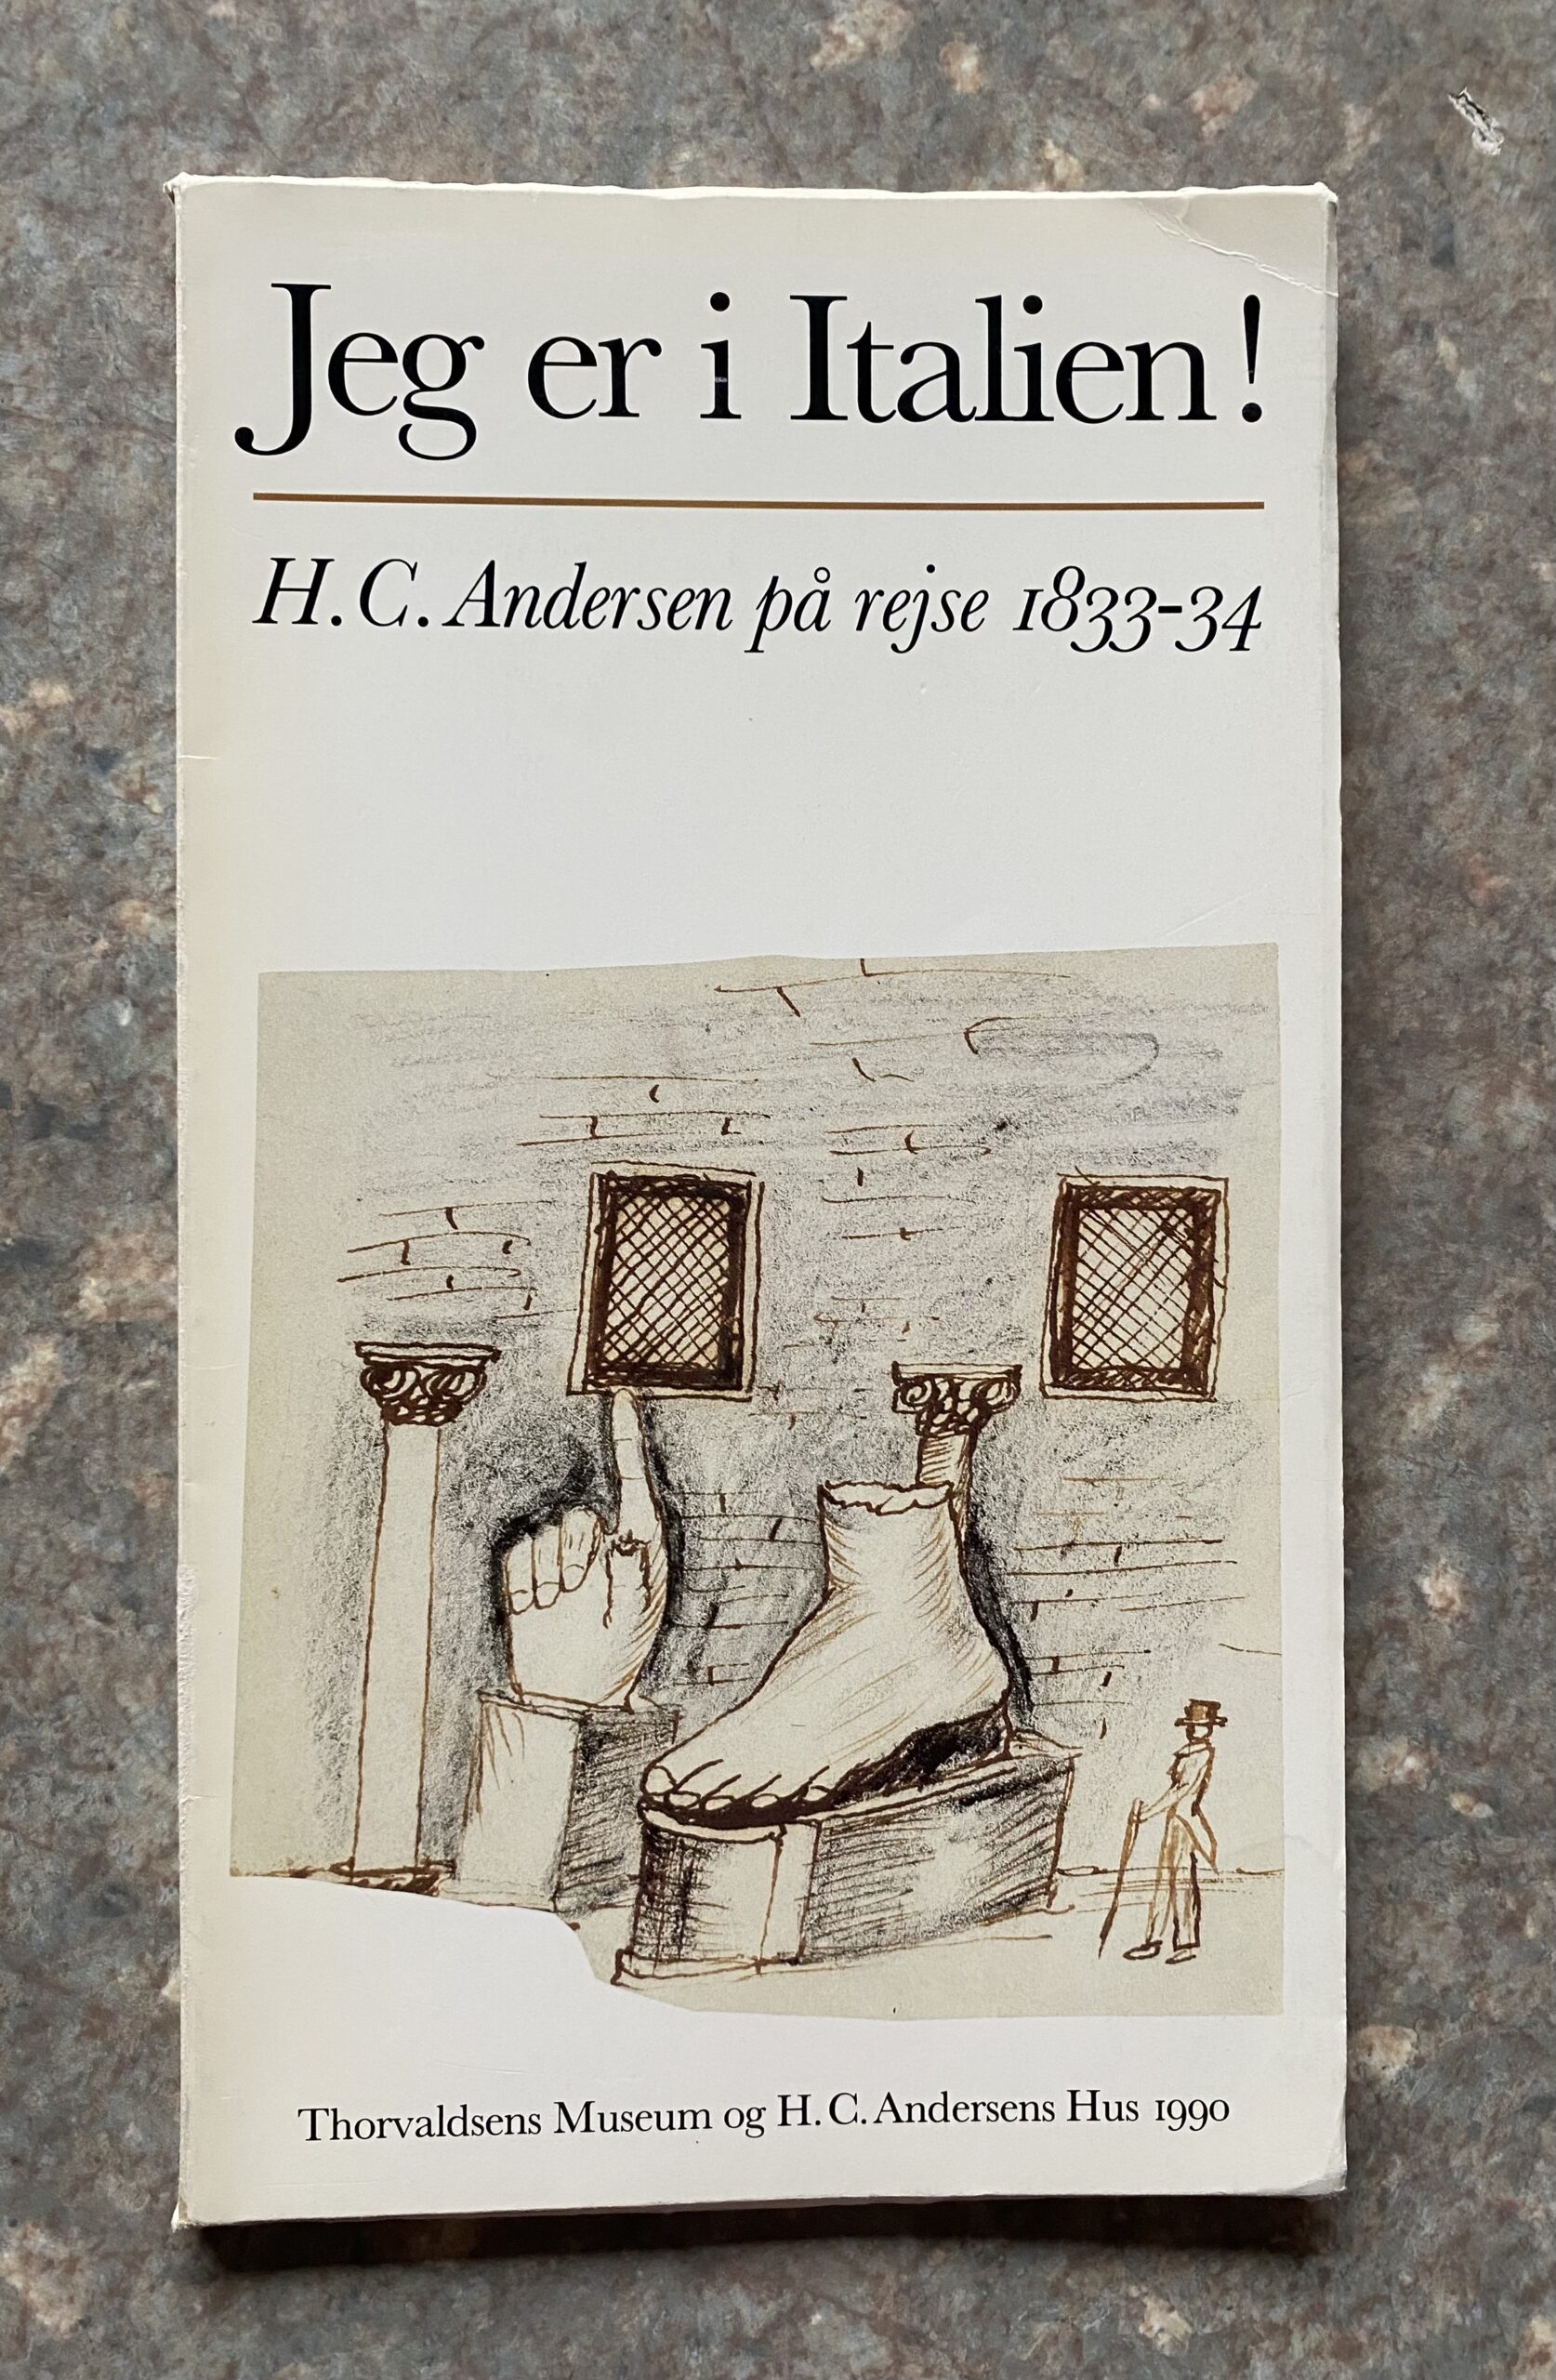 Jeg er i Italien!
H. C. Andersen på rejse 1833-34
Thorvaldsens Museum og H. C. Andersens Hus 1990